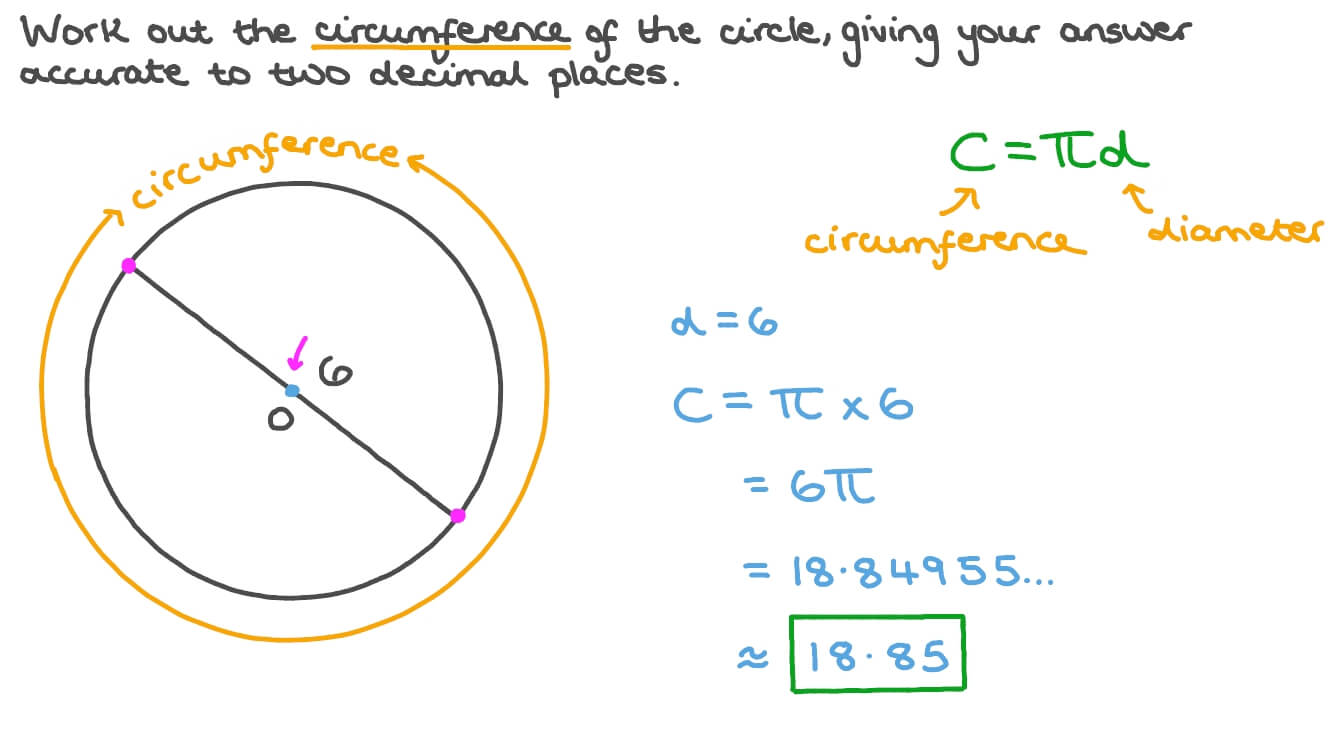 Work out the circumference of the circle, giving your answer
accurate to two decimal places.
circumference
6
O
C = πd
circumference
diameter
d = 6
C = π × 6
= 6π
= 18·84955...
≈ 18·85